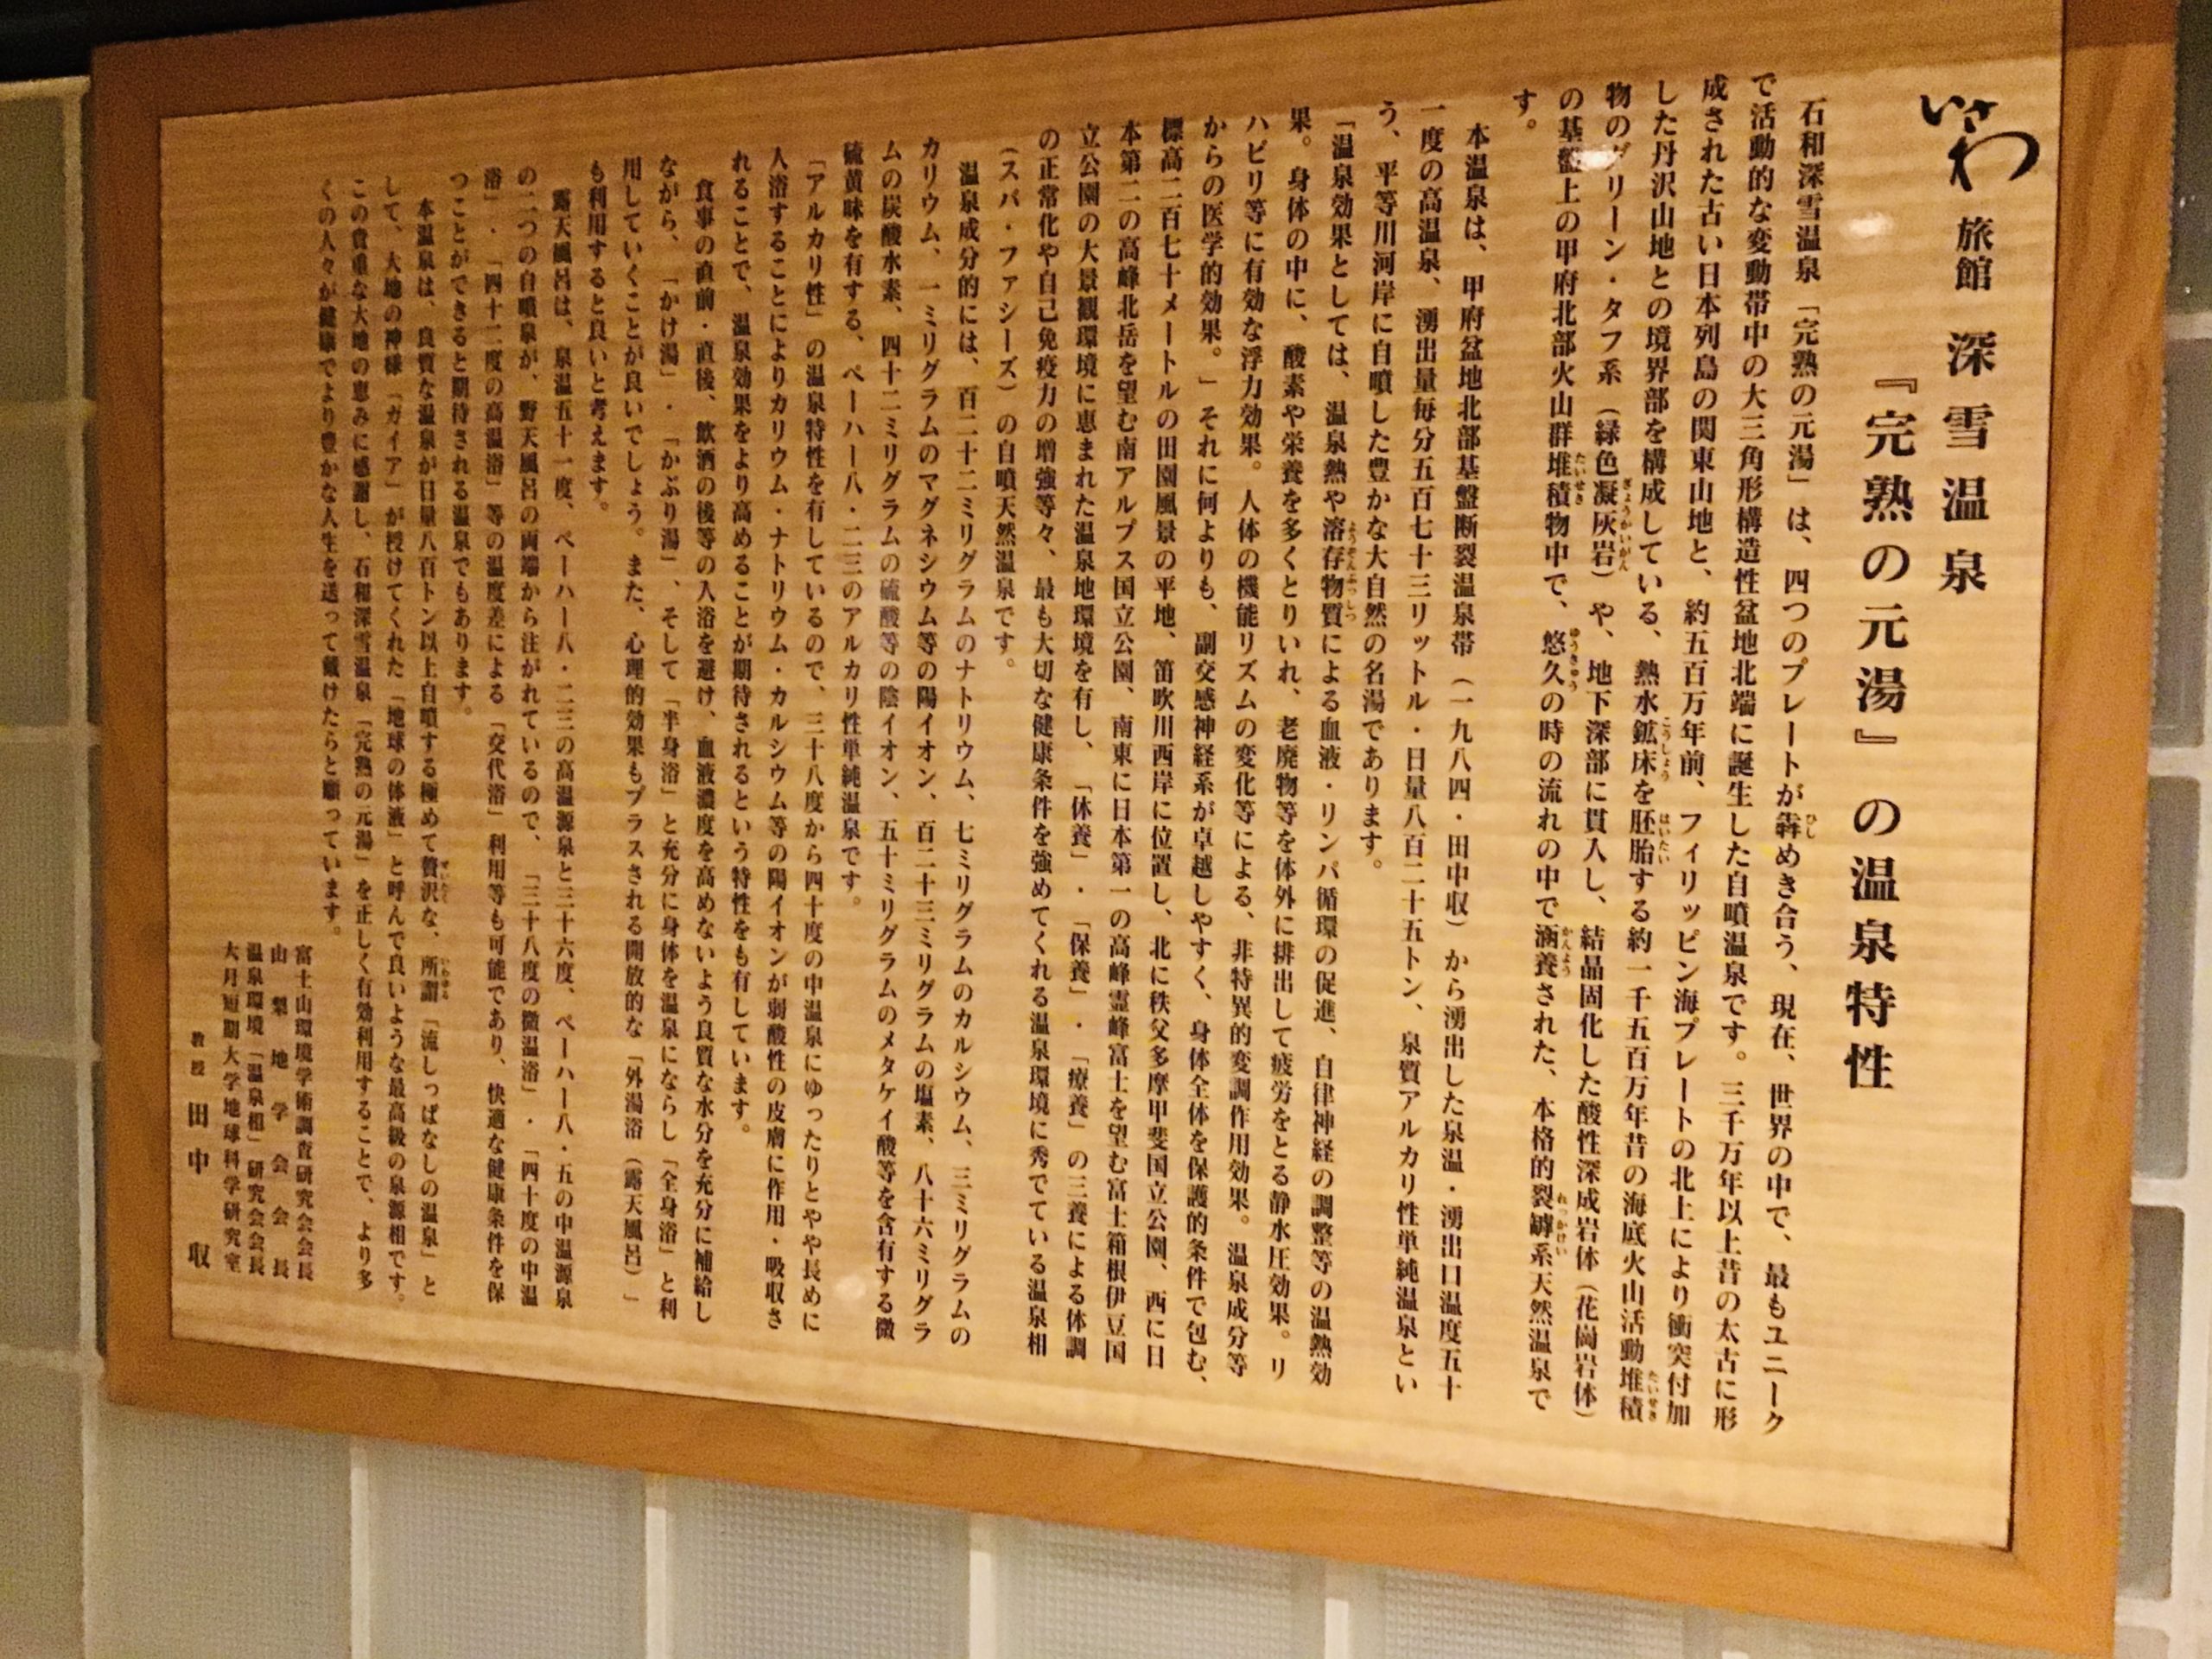 いさわ 旅館 深雪温泉
『完熟の元湯』の温泉特性
石和深雪温泉「完熟の元湯」は、四つのプレートが犇めき合う、現在、世界の中で、最もユニーク
で活動的な変動帯中の大三角形構造性盆地北端に誕生した自噴温泉です。三千万年以上昔の太古に形
成された古い日本列島の関東山地と、約五百万年前、フィリッピン海プレートの北上により衝突付加
した丹沢山地との境界部を構成している、熱水鉱床を胚胎する約一千五百万年昔の海底火山活動堆積
物のグリーン・タフ系（緑色凝灰岩）や、地下深部に貫入し、結晶固化した酸性深成岩体（花崗岩体）
の基盤上の甲府北部火山群堆積物中で、悠久の時の流れの中で涵養された、本格的裂罅系天然温泉で
す。
本温泉は、甲府盆地北部基盤断裂温泉帯（一九八四・田中収）から湧出した泉温・湧出口温度五十
一度の高温泉、湧出量毎分五百七十三リットル・日量八百二十五トン、泉質アルカリ性単純温泉とい
う、平等川河岸に自噴した豊かな大自然の名湯であります。
「温泉効果としては、温泉熱や溶存物質による血液・リンパ循環の促進、自律神経の調整等の温熱効
果。身体の中に、酸素や栄養を多くとりいれ、老廃物等を体外に排出して疲労をとる静水圧効果。リ
ハビリ等に有効な浮力効果。人体の機能リズムの変化等による、非特異的変調作用効果。温泉成分等
からの医学的効果。」それに何よりも、副交感神経系が卓越しやすく、身体全体を保護的条件で包む、
標高二百七十メートルの田園風景の平地、笛吹川西岸に位置し、北に秩父多摩甲斐国立公園、西に日
本第二の高峰北岳を望む南アルプス国立公園、南東に日本第一の高峰霊峰富士を望む富士箱根伊豆国
立公園の大景観環境に恵まれた温泉地環境を有し、「休養」・「保養」・「療養」の三養による体調
の正常化や自己免疫力の増強等々、最も大切な健康条件を強めてくれる温泉環境に秀でている温泉相
（スパ・ファシーズ）の自噴天然温泉です。
温泉成分的には、百二十二ミリグラムのナトリウム、七ミリグラムのカルシウム、三ミリグラムの
カリウム、一ミリグラムのマグネシウム等の陽イオン、百二十三ミリグラムの塩素、八十六ミリグラ
ムの炭酸水素、四十二ミリグラムの硫酸等の陰イオン、五十ミリグラムのメタケイ酸等を含有する微
硫黄味を有する、ペーハー八・二三のアルカリ性単純温泉です。
「アルカリ性」の温泉特性を有しているので、三十八度から四十度の中温泉にゆったりとやや長めに
入浴することによりカリウム・ナトリウム・カルシウム等の陽イオンが弱酸性の皮膚に作用・吸収さ
れることで、温泉効果をより高めることが期待されるという特性をも有しています。
食事の直前・直後、飲酒の後等の入浴を避け、血液濃度を高めないよう良質な水分を充分に補給し
ながら、「かけ湯」・「かぶり湯」、そして「半身浴」と充分に身体を温泉にならし「全身浴」と利
用していくことが良いでしょう。また、心理的効果もプラスされる開放的な「外湯浴（露天風呂）」
も利用すると良いと考えます。
露天風呂は、泉温五十一度、ペーハー八・二三の高温源泉と三十六度、ペーハー八・五の中温源泉
の二つの自噴泉が、野天風呂の両端から注がれているので、「三十八度の微温浴」・「四十度の中温
浴」・「四十二度の高温浴」等の温度差による「交代浴」利用等も可能であり、快適な健康条件を保
つことができると期待される温泉でもあります。
本温泉は、良質な温泉が日量八百トン以上自噴する極めて贅沢な、所謂「流しっぱなしの温泉」と
して、大地の神様「ガイア」が授けてくれた「地球の体液」と呼んで良いような最高級の泉源相です。
この貴重な大地の恵みに感謝し、石和深雪温泉「完熟の元湯」を正しく有効利用することで、より多
くの人々が健康でより豊かな人生を送って戴けたらと願っています。
富士山環境学術調査研究会会長
山梨地学会会長
温泉環境「温泉相」研究会会長
大月短期大学地球科学研究室
教授 田中 収